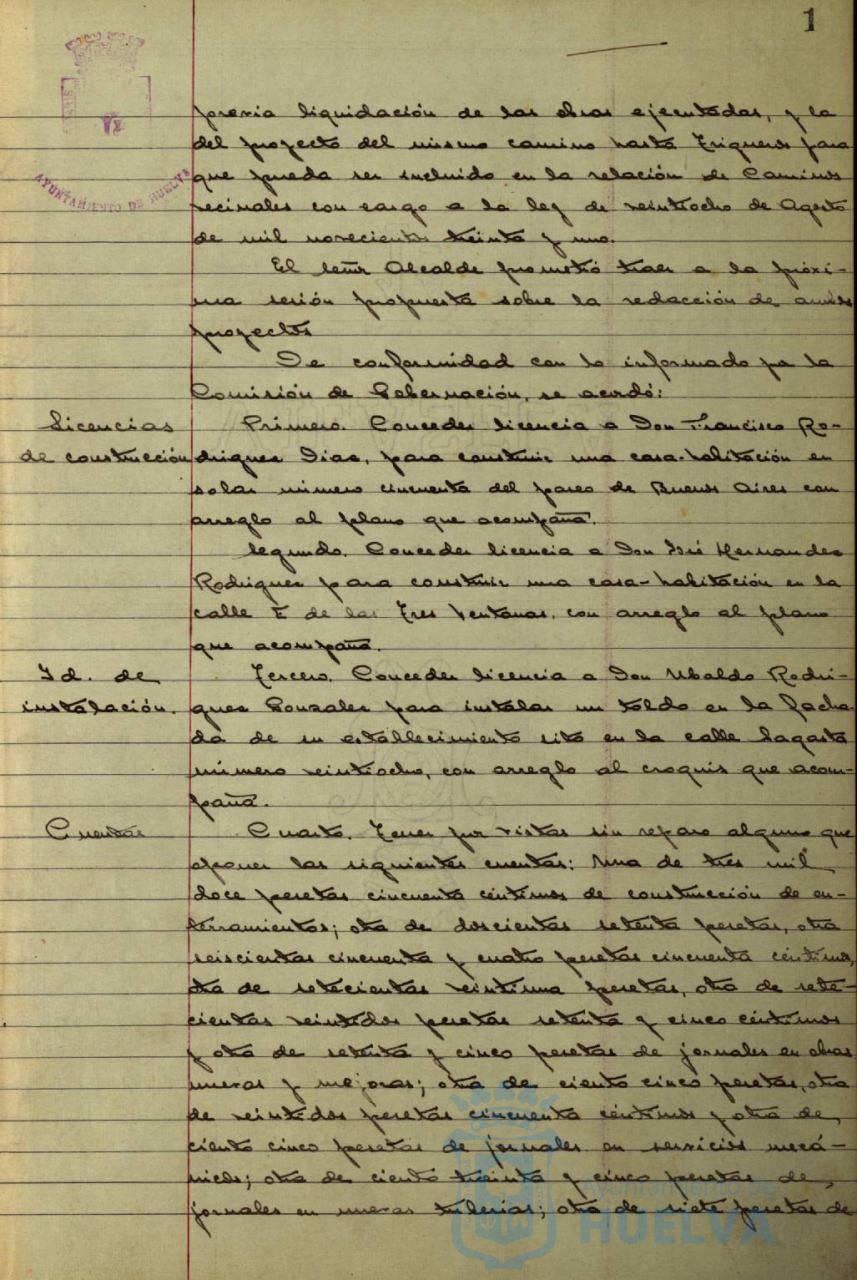 1
AYUNTAMIENTO DE HUELVA
previa liquidación de las obras ejecutadas, y la
del proyecto del mismo camino hasta Trigueros para
que pueda ser incluido en la relación de Caminos
vecinales con cargo a la ley de veintiocho de Agosto
de mil novecientos treinta y uno.
El señor Alcalde prometió traer a la próxi-
ma sesión propuesta sobre la redacción de ambos
proyectos
De conformidad con lo informado por la
Comisión de Gobernación, se acordó:
Licencias
de construcción
Primero. Conceder licencia a Don Francisco Ro-
driguez Diaz, para construir una casa-habitación en
solar número cincuenta del paseo de Buenos Aires con
arreglo al plano que acompaña.
Segundo. Conceder licencia a Don José Hernandez
Rodriguez para construir una casa-habitación en la
calle E de las Tres Ventanas, con arreglo al plano
que acompaña.
Id. de
instalación.
Tercero. Conceder licencia a Don Ubaldo Rodri-
guez Gonzalez para instalar un toldo en la facha
da de su establecimiento sito en la calle Sagasta
número veintiocho, con arreglo al croquis que acom-
paña.
Cuentas
Cuarto. Tener por vistas sin reparo alguno que
oponer las siguientes cuentas: Una de tres mil
doce pesetas cincuenta céntimos de construcción de en-
terramientos; otra de doscientas setenta pesetas, otra
seiscientas cincuenta y cuatro pesetas cincuenta céntimos,
otra de setecientas veintiuna pesetas, otra de sete-
cientas veintidos pesetas setenta y cinco céntimos
y otra de setenta y cinco pesetas de jornales en obras
nuevas y mejoras; otra de ciento cinco pesetas, otra
de veintidos pesetas cincuenta céntimos y otra de
ciento cinco pesetas de jornales en servicios mecá-
nicos; otra de ciento treinta y cinco pesetas de
jornales en nuevas tuberias; otra de siete pesetas de
HUELVA